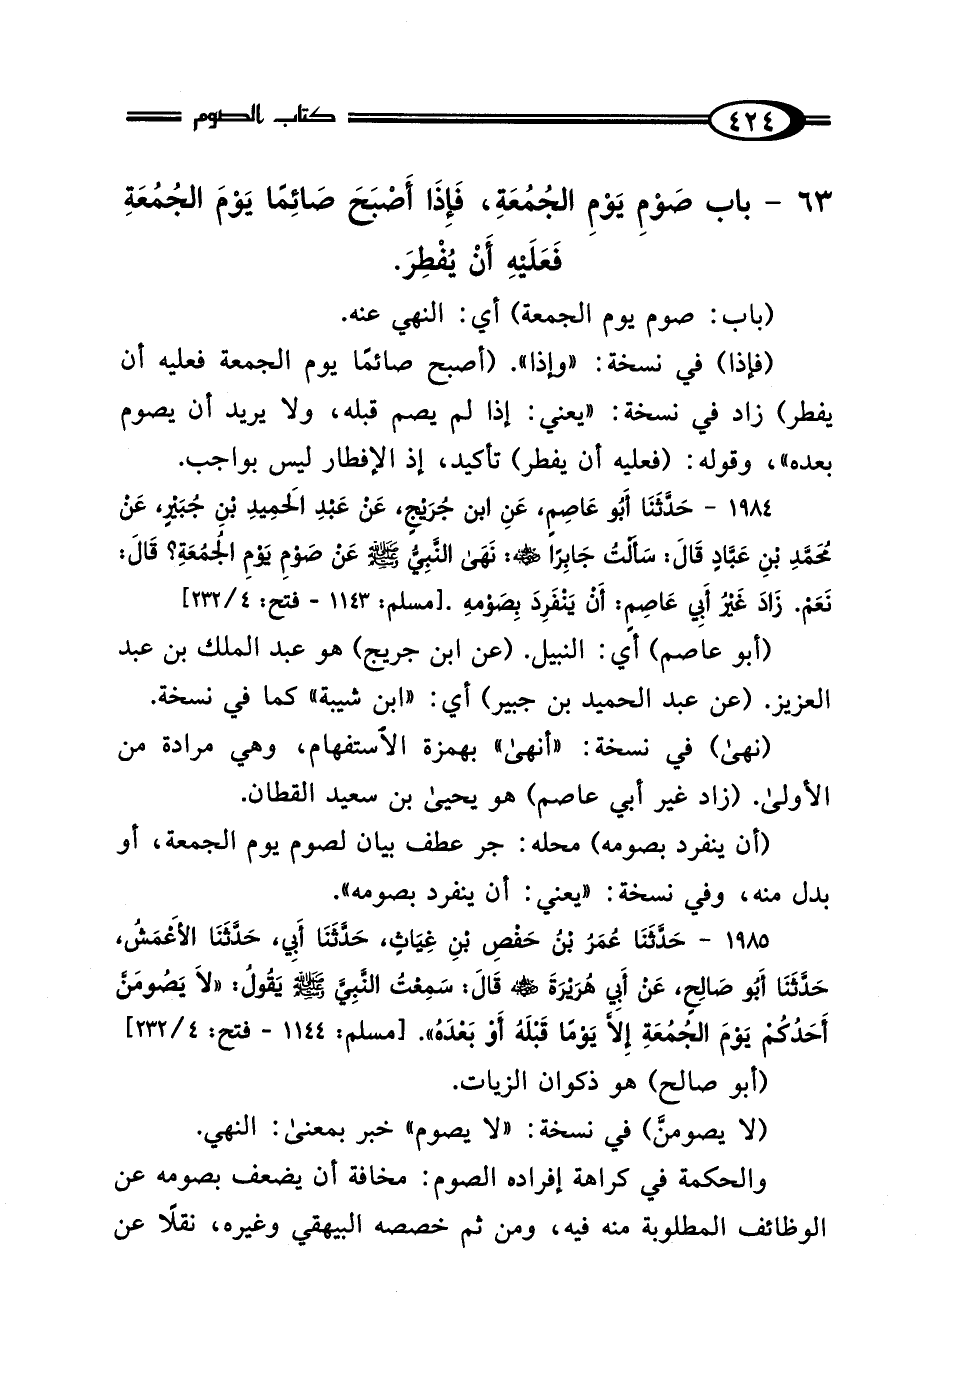 ٤٢٤ كتاب الصوم
٦٣ - باب صَوْمِ يَوْمِ الجُمُعَةِ، فَإِذَا أَصْبَحَ صَائِمًا يَوْمَ الجُمُعَةِ
فَعَلَيْهِ أَنْ يُفْطِرَ.
(باب: صوم يوم الجمعة) أي: النهي عنه.
(فإذا) في نسخة: «وإذا». (أصبح صائمًا يوم الجمعة فعليه أن
يفطر) زاد في نسخة: «يعني: إذا لم يصم قبله، ولا يريد أن يصوم
بعده»، وقوله: (فعليه أن يفطر) تأكيد، إذ الإفطار ليس بواجب.
١٩٨٤ - حَدَّثَنَا أَبُو عَاصِمٍ، عَنِ ابن جُرَيْجٍ، عَنْ عَبْدِ الحَمِيدِ بْنِ جُبَيْرٍ، عَنْ
مُحَمَّدِ بْنِ عَبَّادٍ قَالَ: سَأَلْتُ جَابِرًا ﵁: نَهَى النَّبِيُّ ﷺ عَنْ صَوْمِ يَوْمِ الجُمُعَةِ؟ قَالَ:
نَعَمْ. زَادَ غَيْرُ أَبِي عَاصِمٍ: أَنْ يَنْفَرِدَ بِصَوْمِهِ .[مسلم: ١١٤٣ - فتح: ٤/ ٢٣٢]
(أبو عاصم) أي: النبيل. (عن ابن جريج) هو عبد الملك بن عبد
العزيز. (عن عبد الحميد بن جبير) أي: «ابن شيبة» كما في نسخة.
(نهىٰ) في نسخة: «أنهىٰ» بهمزة الاستفهام، وهي مرادة من
الأولىٰ. (زاد غير أبي عاصم) هو يحيىٰ بن سعيد القطان.
(أن ينفرد بصومه) محله: جر عطف بيان لصوم يوم الجمعة، أو
بدل منه، وفي نسخة: «يعني: أن ينفرد بصومه».
١٩٨٥ - حَدَّثَنَا عُمَرُ بْنُ حَفْصِ بْنِ غِيَاثٍ، حَدَّثَنَا أَبِي، حَدَّثَنَا الأَعْمَشُ،
حَدَّثَنَا أَبُو صَالِحٍ، عَنْ أَبِي هُرَيْرَةَ ﵁ قَالَ: سَمِعْتُ النَّبِيَّ ﷺ يَقُولُ: «لاَ يَصُومَنَّ
أَحَدُكُمْ يَوْمَ الجُمُعَةِ إِلاَّ يَوْمًا قَبْلَهُ أَوْ بَعْدَهُ». [مسلم: ١١٤٤ - فتح: ٤/ ٢٣٢]
(أبو صالح) هو ذكوان الزيات.
(لا يصومنَّ) في نسخة: «لا يصوم» خبر بمعنىٰ: النهي.
والحكمة في كراهة إفراده الصوم: مخافة أن يضعف بصومه عن
الوظائف المطلوبة منه فيه، ومن ثم خصصه البيهقي وغيره، نقلًا عن